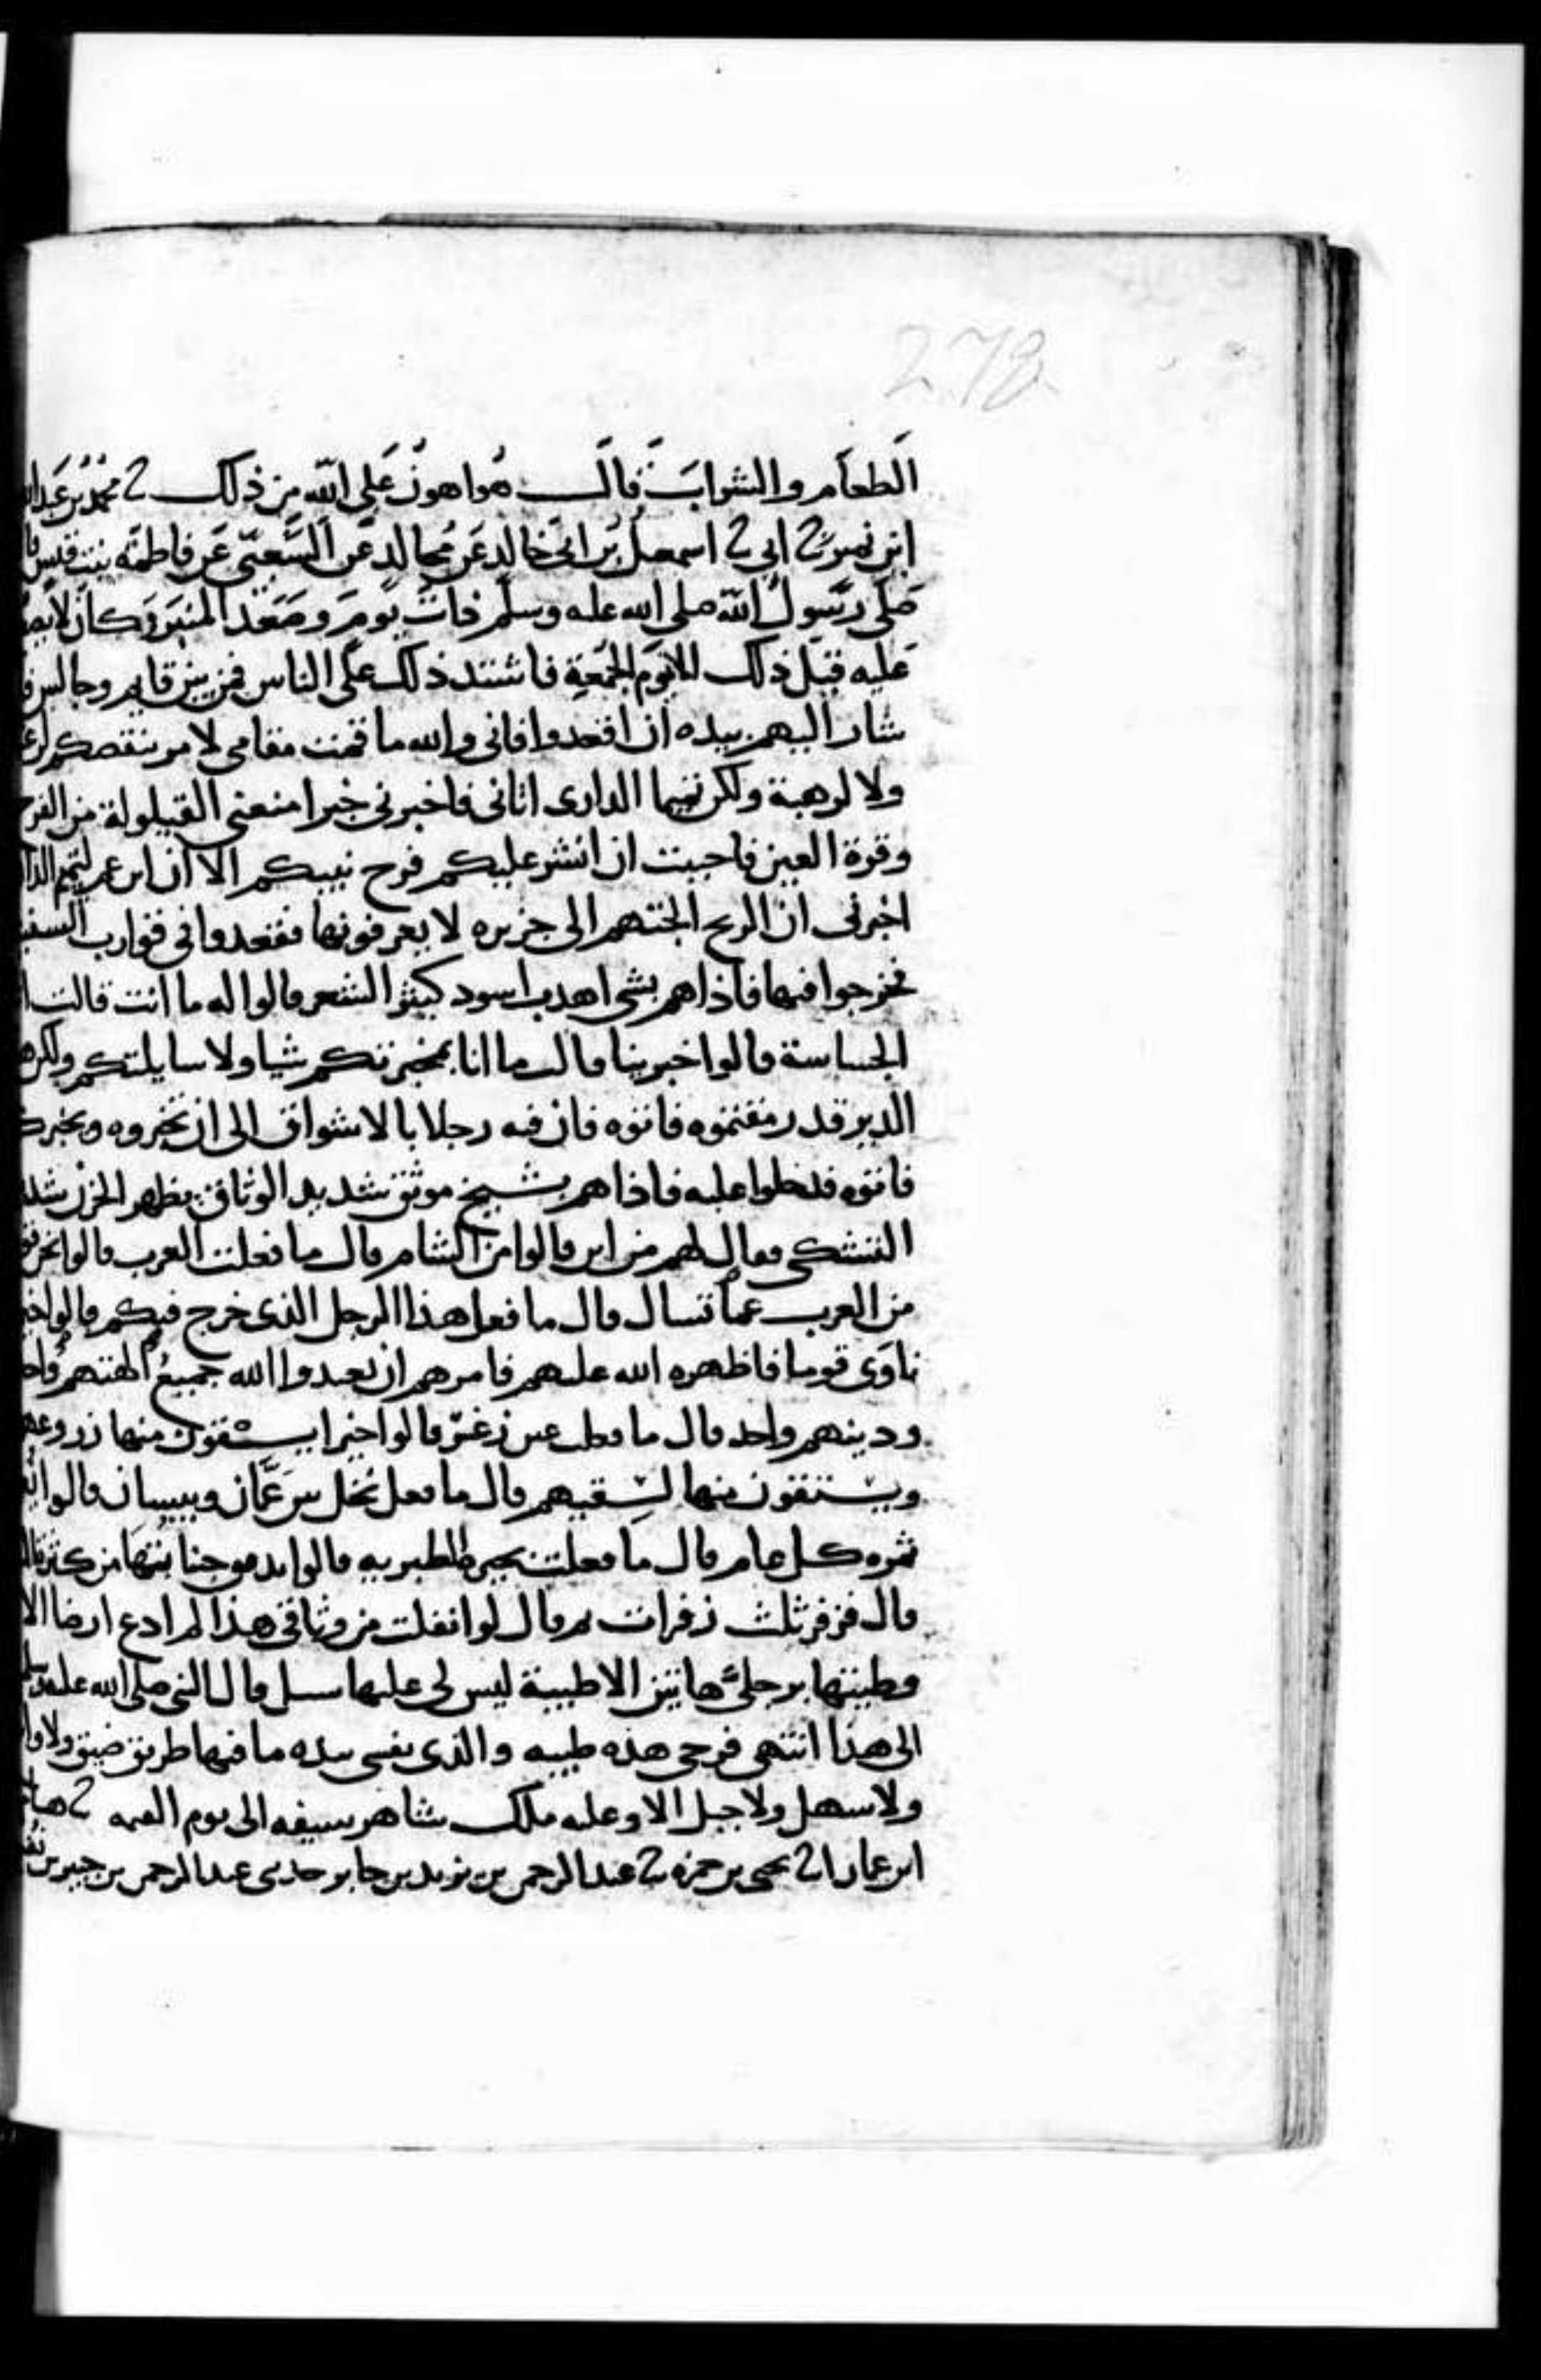 278
الطعام والشراب قال هو اهون على الله من ذلك ثنا محمد بن عبد الله
ابن نمير ثنا ابي ثنا اسمعيل بن ابي خالد عن مجالد عن الشعبي عن فاطمة بنت قيس
صلى رسول الله صلى الله عليه وسلم ذات يوم وصعد المنبر وكان لا يصعد
عليه قبل ذلك الا يوم الجمعة فاشتد ذلك على الناس فمن بين قايم وجالس
شار اليهم بيده ان اقعدوا فاني والله ما قمت مقامي لامر ينقصكم
ولا لرهبة ولكن تميما الداري اتاني فاخبرني خبرا منعني القيلولة من الفرح
وقرة العين فاحببت ان انشر عليكم فرح نبيكم الا ان ابن عم لتميم
اخبرني ان الريح الجتهم الى جزيره لا يعرفونها فقعدوا في قوارب
فخرجوا فيها فاذا هم بشي اهدب اسود كثير الشعر قالوا له ما انت قالت
الجساسة قالوا اخبرينا قالت ما انا بمخبرتكم شيا ولا سايلتكم ولكن
الدير قد رمقتموه فاتوه فان فيه رجلا بالاشواق الى ان تخبروه
فاتوه فدخلوا عليه فاذا هم بشيخ موثق شديد الوثاق يظهر الحزن
التشكي فقال لهم من اين قالوا من الشام قال ما فعلت العرب قالوا نحن
من العرب عما تسال قال ما فعل هذا الرجل الذي خرج فيكم قالوا
ناوى قوما فاظهره الله عليهم فامرهم ان يعبدوا الله جميع الهتهم
ودينهم واحد قال ما فعلت عين زغر قالوا خيرا يسقون منها
ويستقون منها لسقيهم قال ما فعل نخل بين عمان وبيسان قالوا
ثمره كل عام قال ما فعلت بحيرة الطبريه قالوا تدفق جنباتها من كثرة
قال فزفر ثلث زفرات ثم قال لو انفلت من وثاقي هذا لم ادع ارضا
وطيتها برجلي هاتين الا طيبة ليس لي عليها سبيل قال النبي صلى الله عليه
الى هذا انتهى فرحي هذه طيبه والذي نفسي بيده ما فيها طريق ضيق
ولا سهل ولا جبل الا وعليه ملك شاهر سيفه الى يوم القيمه ثنا
ابن عمار ثنا يحيى بن حمزه ثنا عبد الرحمن بن يزيد بن جابر حدثني عبد الرحمن بن جبير بن